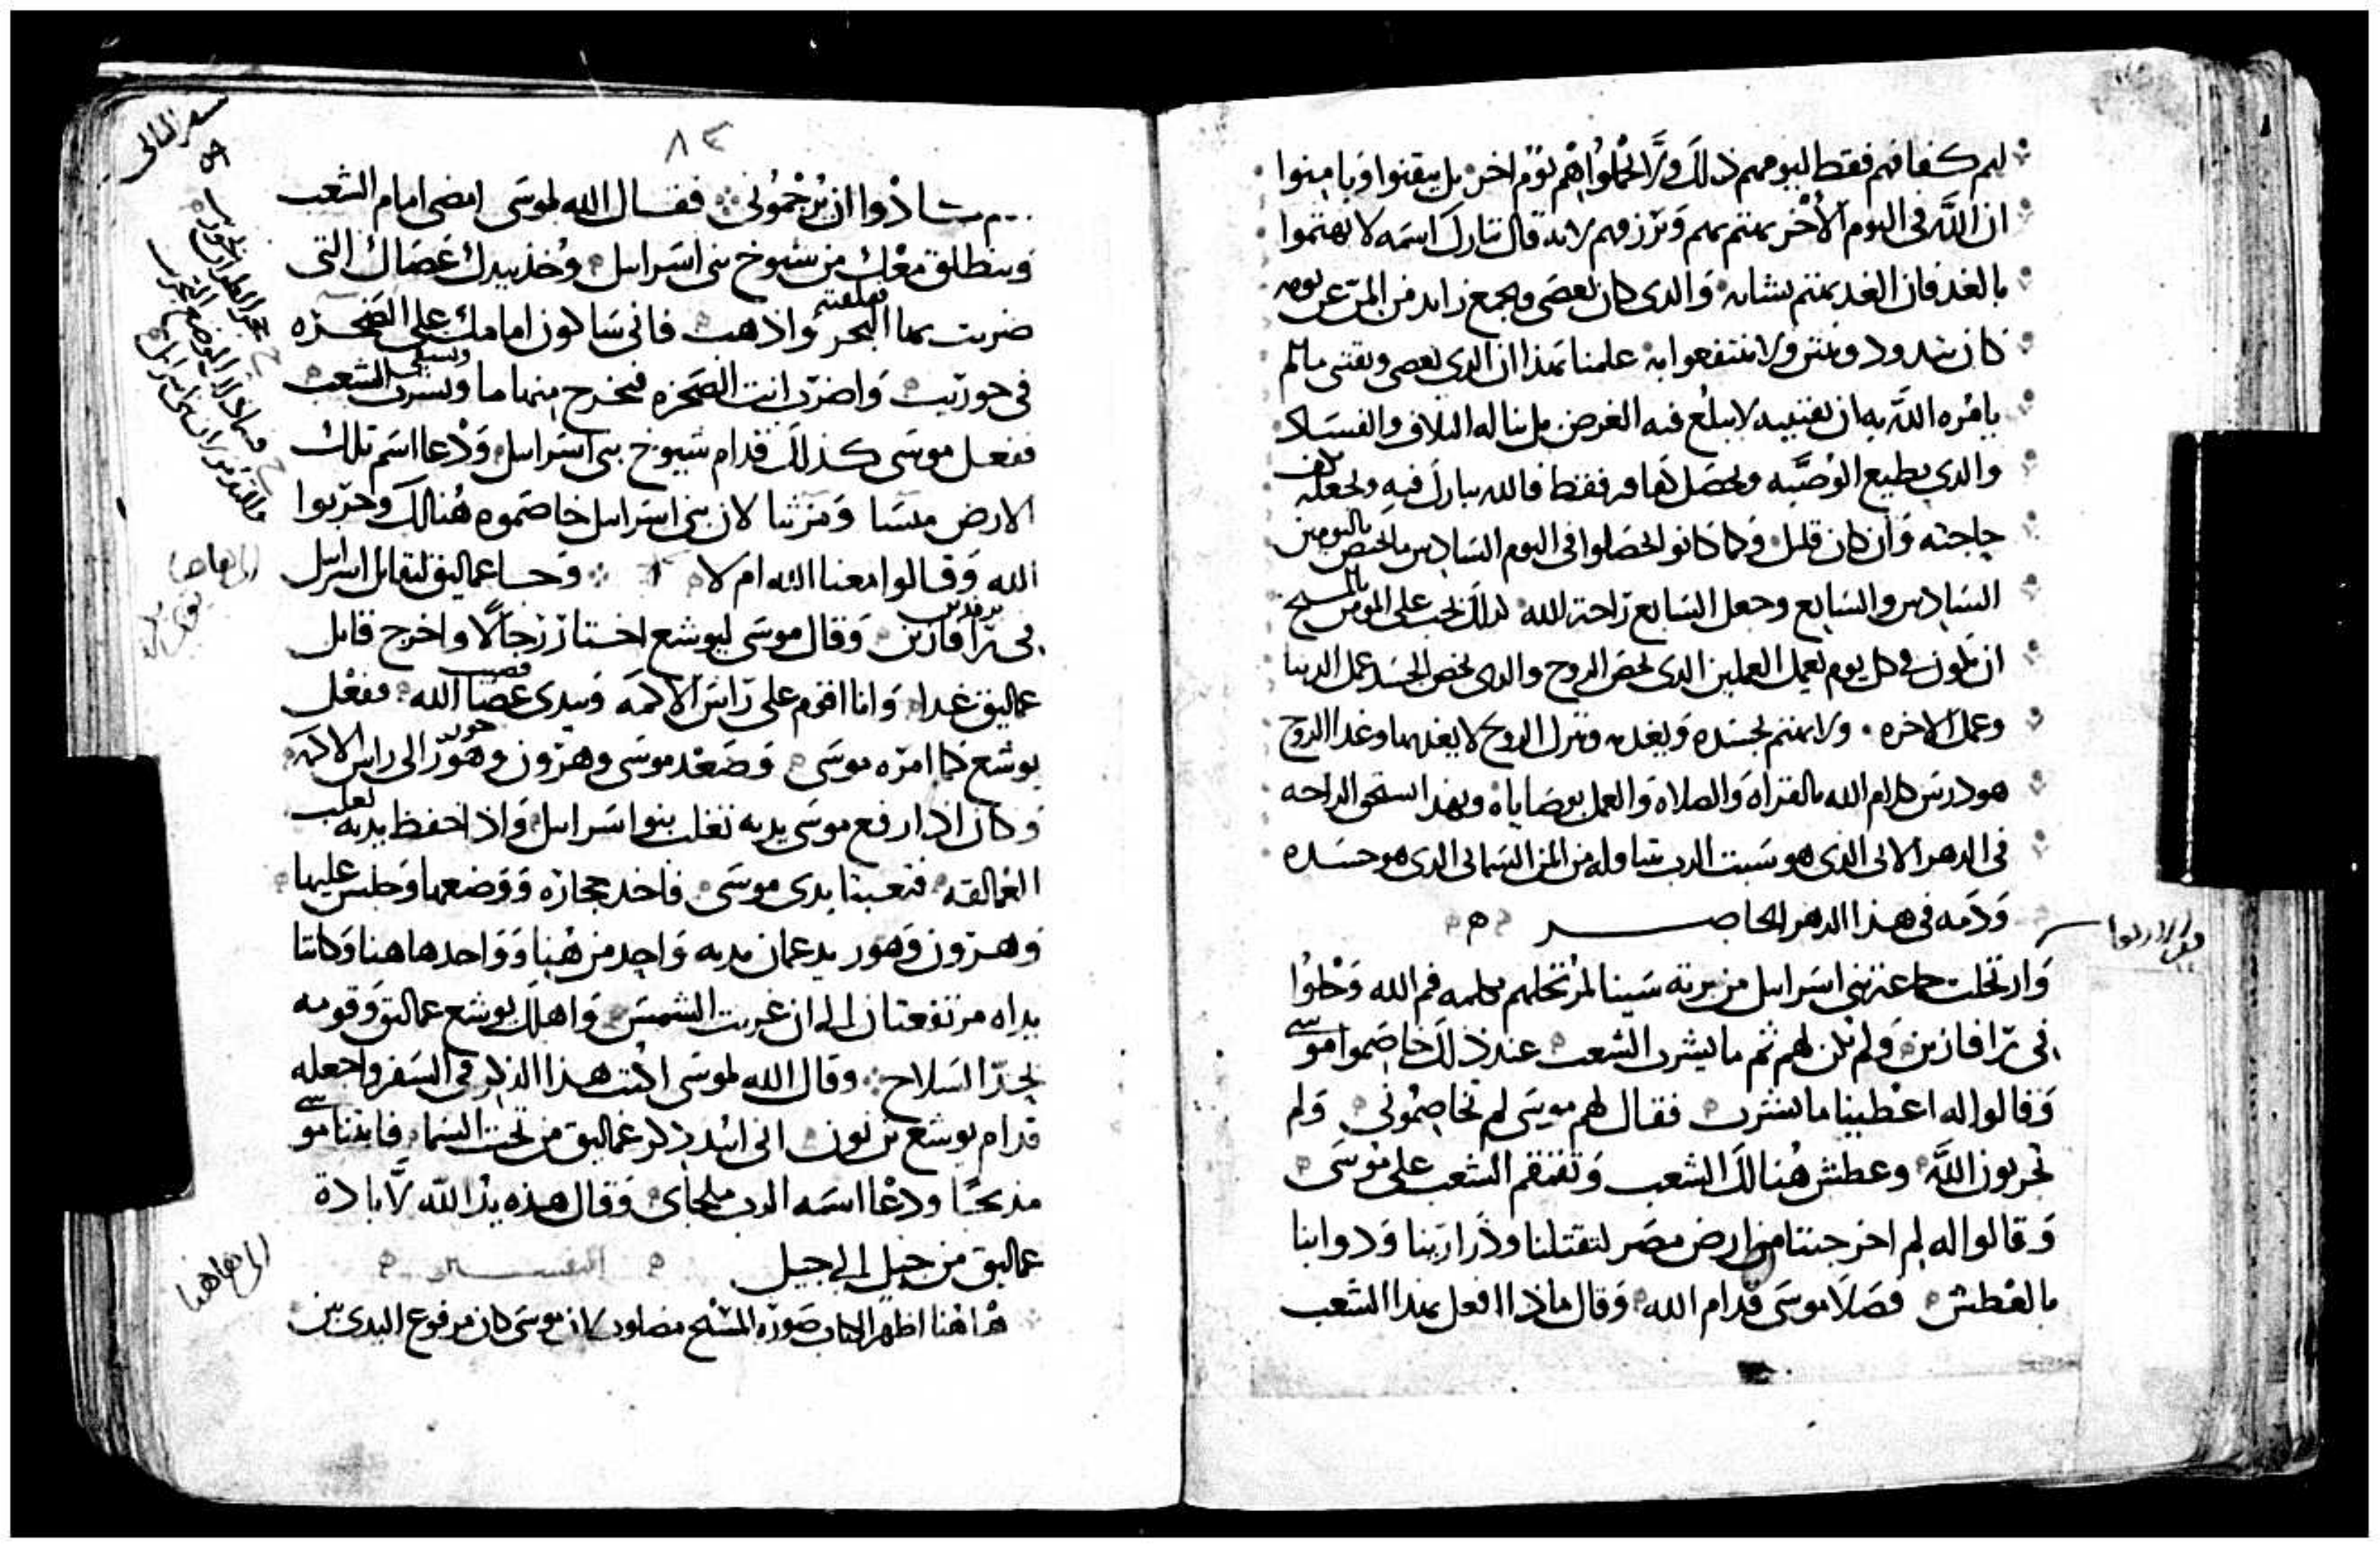 لهم كفافهم فقط ليومهم ذلك ولا يحملوا هم يوم اخر بل يتقنوا ويامنوا
ان الله في اليوم الاخر يهتم بهم ويرزقهم لانه قال تبارك اسمه لا تهتموا
بالغد فان الغد يهتم بشانه والدي كان يعصي ويجمع زايد من المن عن يومه
كان يدود وينتن ولا ينتفعوا به علمنا بهذا ان الدي يعصي ويقتني مالم
يامره الله به ان يقتنيه لا يبلغ فيه الغرض بل يناله التلاف والفساد
والدي يطيع الوصيه ويحصل كفافه فقط فالله يبارك فيه ويجعله
حاجته وان كان قليل وكما كانوا يحصلوا في اليوم السادس ما يختص باليومين
السادس والسابع وجعل السابع راحة لله لدلك يجب على المومن بالمسيح
ان يكون في كل يوم يعمل العملين الدي يخص الروح والدي يخص الجسد عمل الدنيا
وعمل الاخره ولا يهتم بجسده ويغديه ويترك الروح لا يغديها وغدا الروح
هو درس كلام الله بالقراه والصلاه والعمل بوصاياه وبهذا يستحق الراحه
في الدهر الاتي الذي هو سبت الرب تناوله من المن السماي الدي هو جسده
ودمه في هذا الدهر الحاضر
وارتحلت جماعة بني اسرايل من برية سينا لمرتحلهم بكلمه فم الله وحلوا
في رافازين ولم يكن لهم ثم ما يشرب الشعب عند ذلك خاصموا موسى
وقالوا له اعطينا ما نشرب فقال لهم موسى لم تخاصموني ولم
تجربون الله وعطش هنالك الشعب وتقمقم الشعب على موسى
وقالوا له لم اخرجتنا من ارض مصر لتقتلنا وذرارينا ودوابنا
بالعطش فصلا موسى قدام الله وقال ماذا افعل بهذا الشعب
٨٣
ان يرجموني فقال الله لموسى امضي امام الشعب
وينطلق معك من شيوخ بني اسرايل وخذ بيدك عصاك التي
ضربت بها البحر واذهب فاني ساكون امامك على الصخره
في حوريب واضرب انت الصخره فيخرج منها ما ويشرب الشعب
ففعل موسى كذلك قدام شيوخ بني اسرايل ودعا اسم تلك
الارض مسا لان بني اسرايل خاصموه هنالك وجربوا
الله وقالوا معنا الله ام لا وجا عماليق ليقاتل اسرايل
في رافازين وقال موسى ليوشع اختار رجالا واخرج قاتل
عماليق غدا وانا اقوم على راس الاكمه وبيدي عصا الله ففعل
يوشع كما امره موسى وصعد موسى وهرون وهور الى راس الاكمه
وكان اذا رفع موسى يديه تغلب بنوا اسرايل واذا خفظ يديه تغلب
العمالقه فتعبتا يدي موسى فاخد حجاره ووضعها وجلس عليها
وهرون وهور يدعمان يديه واحد من هنا وواحد هاهنا وكانتا
يداه مرتفعتان الى ان غربت الشمس واهلك يوشع عماليق وقومه
بحد السلاح وقال الله لموسى اكتب هذا الذكر في السفر واجعله
قدام يوشع بن نون اني ابيد ذكر عماليق من تحت السما فابتنا موسى
مذبحا ودعا اسمه الرب ملجاي وقال هذه يد الله لابادة
عماليق من جيل الى جيل
هاهنا اظهر الكتاب صورة المسيح مصلوب لان موسى كان مرفوع اليدي
الى هاهنا
الى هاهنا